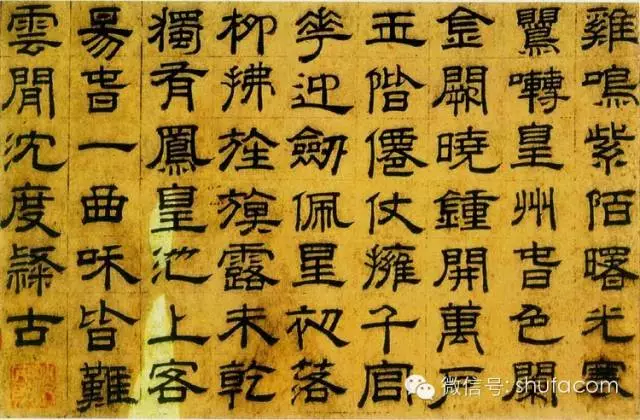 雞鳴紫陌曙光寒
鸎囀皇州旾色闌
金闕曉鍾開萬户
玉階僊仗擁千官
花迎劒佩星初落
柳拂旌旗露未乾
獨有鳳皇池上客
昜旾一曲咊皆難
雲間沈度隸古
微信号: shufacom